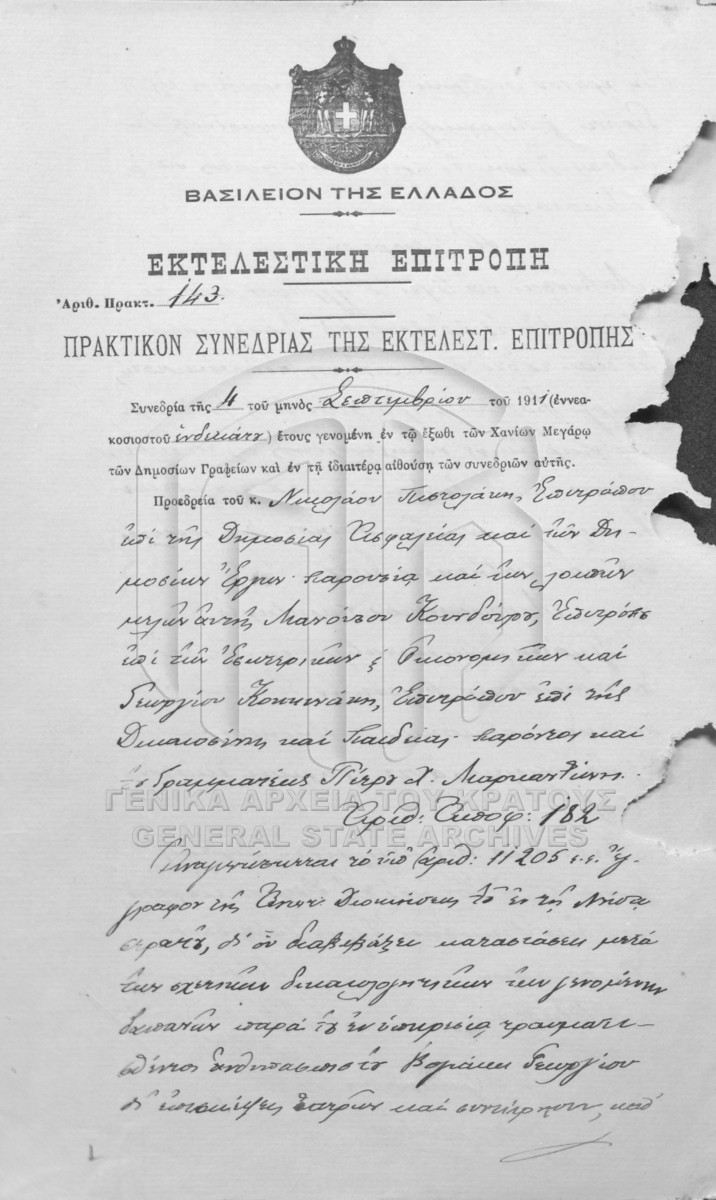 ΒΑΣΙΛΕΙΟΝ ΤΗΣ ΕΛΛΑΔΟΣ
ΕΚΤΕΛΕΣΤΙΚΗ ΕΠΙΤΡΟΠΗ
Ἀριθ. Πρακτ. 143.
ΠΡΑΚΤΙΚΟΝ ΣΥΝΕΔΡΙΑΣ ΤΗΣ ΕΚΤΕΛΕΣΤ. ΕΠΙΤΡΟΠΗΣ
Συνεδρία τῆς 4 τοῦ μηνὸς Σεπτεμβρίου τοῦ 1911 (ἐννεα-
κοσιοστοῦ ἑνδεκάτου) ἔτους γενομένη ἐν τῷ ἔξωθι τῶν Χανίων Μεγάρῳ
τῶν Δημοσίων Γραφείων καὶ ἐν τῇ ἰδιαιτέρᾳ αἰθούσῃ τῶν συνεδριῶν αὐτῆς.
Προεδρεία τοῦ κ. Νικολάου Πιστολάκη, Ἐπιτρόπου
ἐπὶ τῆς Δημοσίας Ἀσφαλείας καὶ τῶν Δη-
μοσίων Ἔργων παρουσίᾳ καὶ τῶν λοιπῶν
μελῶν αὐτῆς Μανούσου Κουνδούρου, Ἐπιτρόπου
ἐπὶ τῶν Ἐσωτερικῶν & Οἰκονομικῶν καὶ
Γεωργίου Κοκκινάκη, Ἐπιτρόπου ἐπὶ τῆς
Δικαιοσύνης καὶ Παιδείας παρόντος καὶ
τοῦ Γραμματέως Πέτρου Χ. Μαρκαντώνη.
ΓΕΝΙΚΑ ΑΡΧΕΙΑ ΤΟΥ ΚΡΑΤΟΥΣ
Ἀριθ: Ἀποφ: 182
GENERAL STATE ARCHIVES
Ἀναγινώσκεται τὸ ὑπ' ἀριθ: 11205 ἐ.ἔ. ἔγ-
γραφον τῆς Διοικήσεως τοῦ ἐν τῇ Νήσῳ
στρατοῦ, δι' οὗ διαβιβάζει καταστάσεις μετὰ
τῶν σχετικῶν δικαιολογητικῶν τῶν γενομένων
δαπανῶν παρὰ τοῦ ἐν ὑπηρεσίᾳ τραυματι-
σθέντος ἀνθυπασπιστοῦ Γεωργίου
δι' ἐπισκέψεις ἰατρῶν καὶ